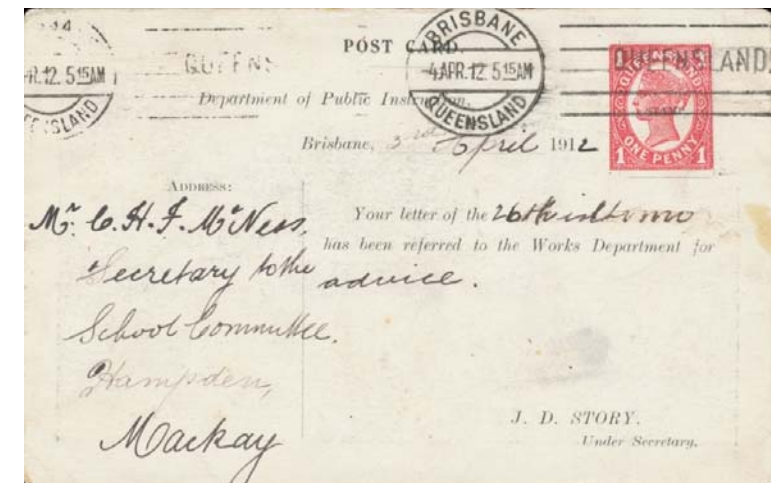 POST CARD.
QUEENS
QUEENSLAND.
BRISBANE
4 APR. 12. 5 15 AM
QUEENSLAND
R. 12. 5 15 AM
QUEENSLAND
ONE PENNY
1 1
Department of Public Instruction,
Brisbane, 3rd April 1912
ADDRESS:
Mr. C. H. F. McNess,
Secretary to the
School Committee.
Hampden,
Mackay
Your letter of the 26th
has been referred to the Works Department for
advice.
J. D. STORY,
Under Secretary.